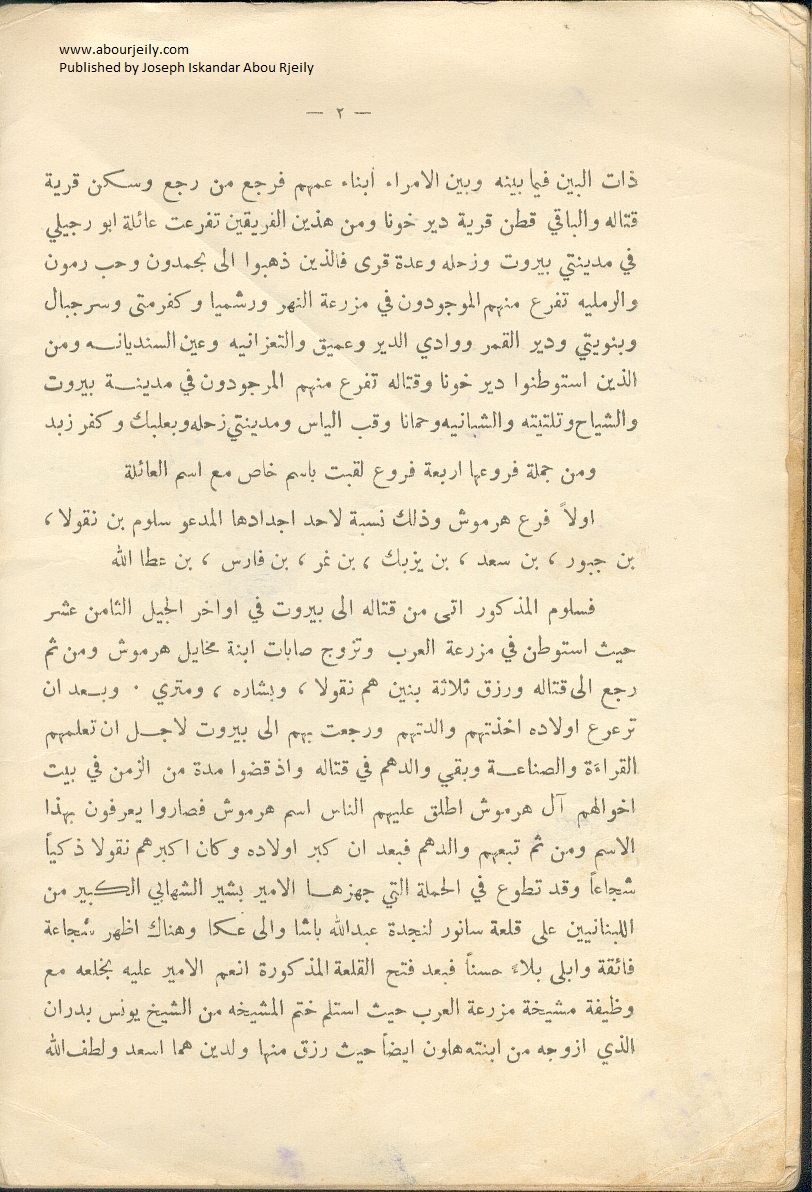 www.abourjeily.com
Published by Joseph Iskandar Abou Rjeily
— ٢ —
ذات البين فيما بينه وبين الامراء أبناء عمهم فرجع من رجع وسكن قرية
قتاله والباقي قطن قرية دير خونا ومن هذين الفريقين تفرعت عائلة ابو رجيلي
في مدينتي بيروت وزحله وعدة قرى فالذين ذهبوا الى بحمدون وحب رمون
والرمليه تفرع منهم الموجودون في مزرعة النهر ورشميا وكفرمتى وسرجبال
وبنويتي ودير القمر ووادي الدير وعميق والتعزانيه وعين السنديانـه ومن
الذين استوطنوا دير خونا وقتاله تفرع منهم المرجودون في مدينـة بيروت
والشياح وتلتيته والشبانيه وحمانا وقب الياس ومدينتي زحله وبعلبك وكفر زبد
ومن جملة فروعها اربعة فروع لقبت باسم خاص مع اسم العائلة
اولاً فرع هرموش وذلك نسبة لاحد اجدادها المدعو سلوم بن نقولا ،
بن جبور ، بن سعد ، بن يزبك ، بن نمر ، بن فارس ، بن عطا الله
فسلوم المذكور اتى من قتاله الى بيروت في اواخر الجيل الثامن عشر
حيث استوطن في مزرعة العرب وتزوج صابات ابنة مخايل هرموش ومن ثم
رجع الى قتاله ورزق ثلاثة بنين هم نقولا ، وبشاره ، ومتري . وبعد ان
ترعرع اولاده اخذتهم والدتهم ورجعت بهم الى بيروت لاجل ان تعلمهم
القراءة والصناعـة وبقي والدهم في قتاله واذ قضوا مدة من الزمن في بيت
اخوالهم آل هرموش اطلق عليهم الناس اسم هرموش فصاروا يعرفون بهذا
الاسم ومن ثم تبعهم والدهم فبعد ان كبر اولاده وكان اكبرهم نقولا ذكياً
شجاعاً وقد تطوع في الحملة التي جهزها الامير بشير الشهابي الكبير من
اللبنانيين على قلعة سانور لنجدة عبدالله باشا والى عكا وهناك اظهر شجاعة
فائقة وابلى بلاءً حسناً فبعد فتح القلعة المذكورة انعم الامير عليه بخلعه مع
وظيفة مشيخة مزرعة العرب حيث استلم ختم المشيخه من الشيخ يونس بدران
الذي ازوجه من ابنته هاون ايضاً حيث رزق منها ولدين هما اسعد ولطف الله